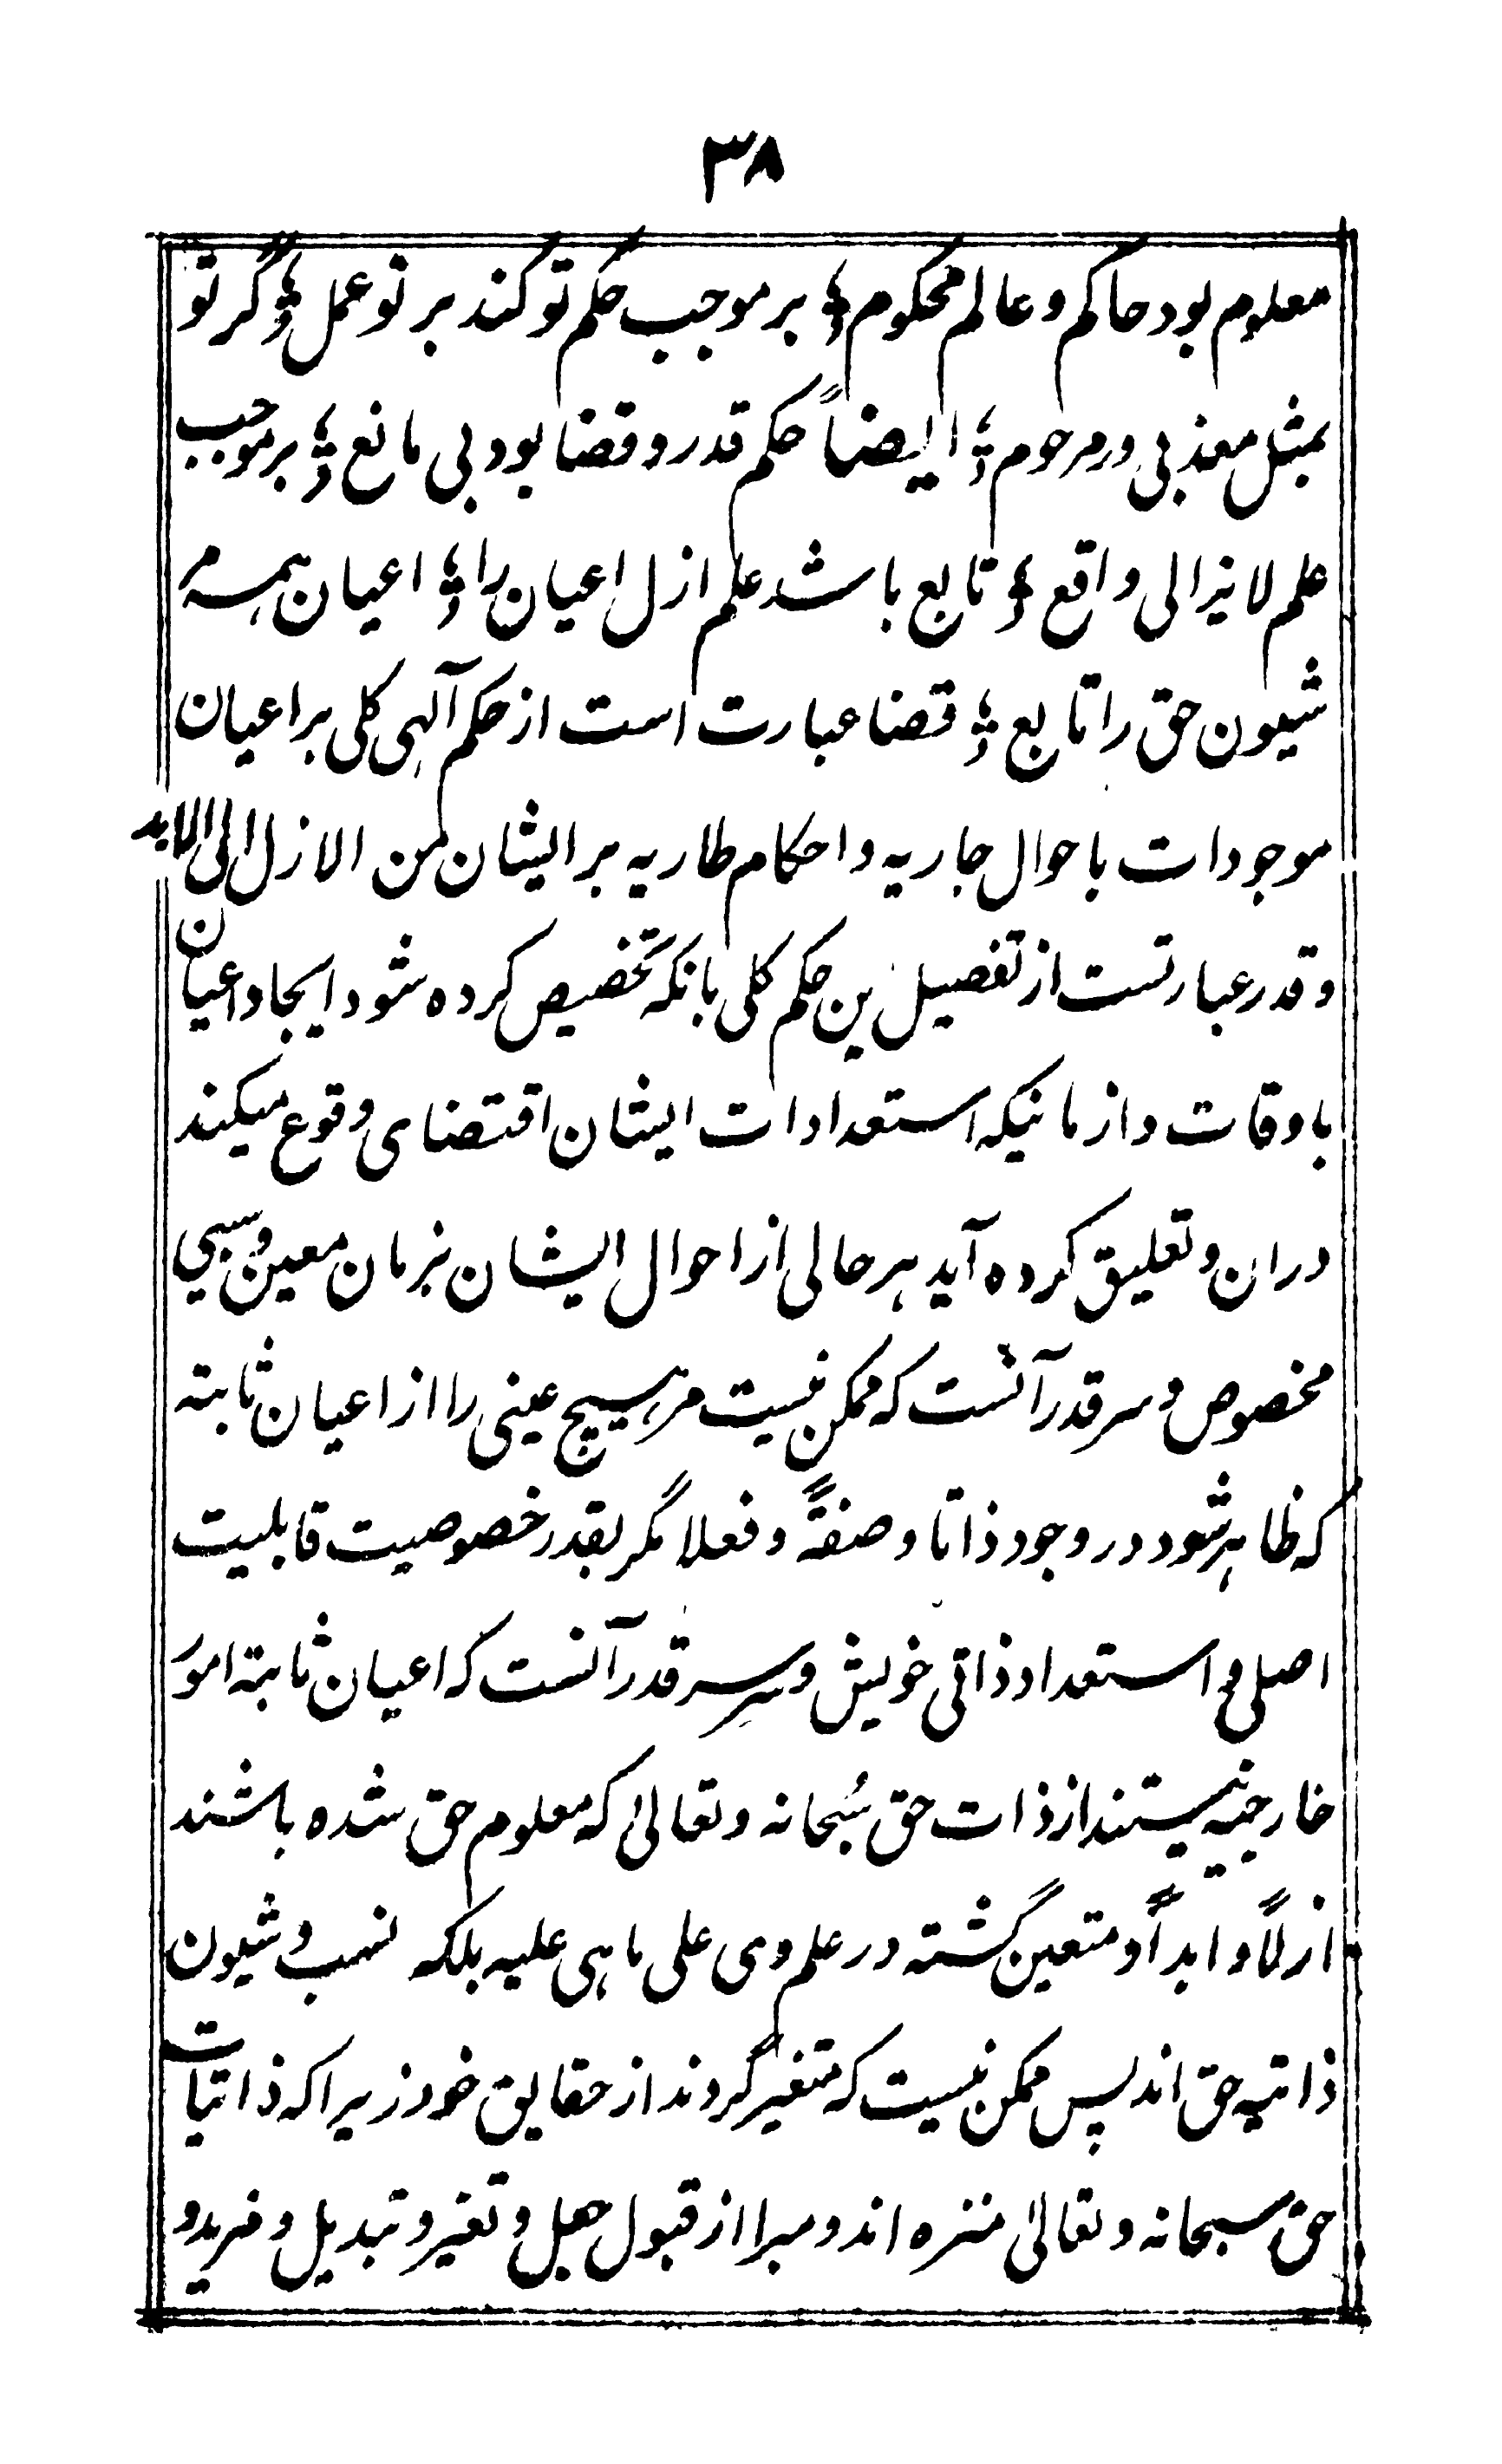 ۳۸
معلوم بود حاکم و عالم محکوم ؛ بر موجب حکم تو کند بر تو عمل ؛ گر تو
بمثل معذبی ور مرحوم ؛ ایضاً حکم قدر و قضا بود بی مانع ؛ بر موجب
علم لا یزالی واقع ؛ تابع باشد علم ازل اعیان را ؛ اعیان همه مر
شیون حق را تابع ؛ قضا عبارت است از حکم آلهی کلی بر اعیان
موجودات باحوال جاریه و احکام طاریه بر ایشان من الازل الی الابد
و قدر عبارتست از تفصیل ین حکم کلی بانکه تخصیص کرده شود ایجاد اعیان
باوقات و ازمانیکه استعدادات ایشان اقتضای وقوع میکند
دران و تعلیق کرده آید هر حالی از احوال ایشان بزمان معین و سببی
مخصوص و سر قدر آنست که ممکن نیست مر هیچ عینی را از اعیان ثابته
که ظاهر شود در وجود ذاتا و صفةً و فعلا مگر بقدر خصوصیت قابلیت
اصلی و استعداد ذاتی خویش و سرِ سر قدر آنست که اعیان ثابته امور
خارجیه نیستند از ذات حق سُبحانه و تعالیٰ که معلوم حق شده باشند
ازلاً و ابداً و متعین گشته در علم وی علی ما هی علیه بلکه نسب و شیون
ذاتیه حق اند پس ممکن نیست که متغیر گردند از حقایق خود زیرا که ذاتیات
حق سبحانه و تعالیٰ منزه اند و مبرا از قبول جعل و تغیر و تبدیل و مزید و